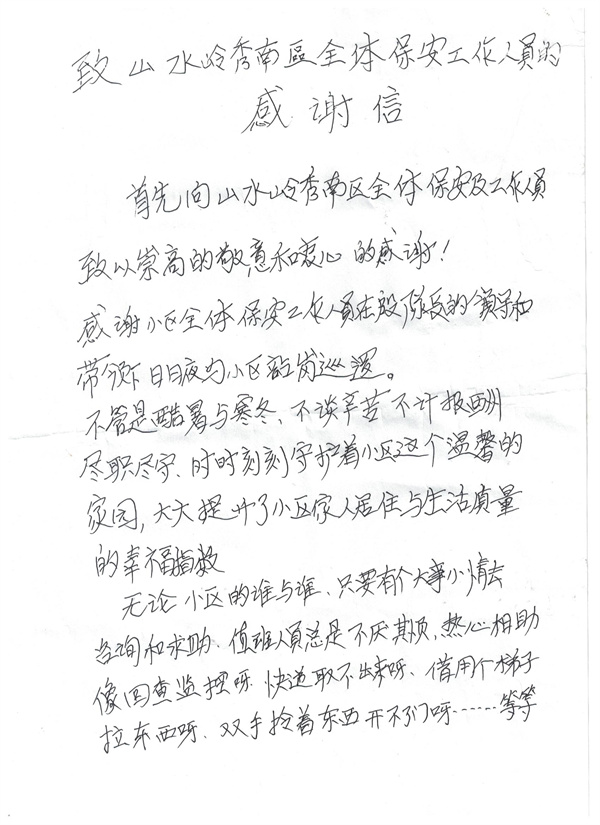 致山水岭秀南區全体保安工作人員的
感谢信
首先向山水岭秀南区全体保安及工作人员
致以崇高的敬意和衷心的感谢！
感谢小区全体保安工作人员在段队长的领导和
带领下日日夜为小区站岗巡逻。
不管是酷暑与寒冬、不谈辛苦不计报酬
尽职尽守、时时刻刻守护着小区这个温馨的
家园，大大提升了小区家人居住与生活质量
的幸福指数
无论小区的谁与谁、只要有个大事小情去
咨询和求助、值班人員总是不厌其烦，热心相助
像回查监控呀 快递取不出来呀、借用个梯子
拉东西呀、双手拎着东西开不了门呀……等等